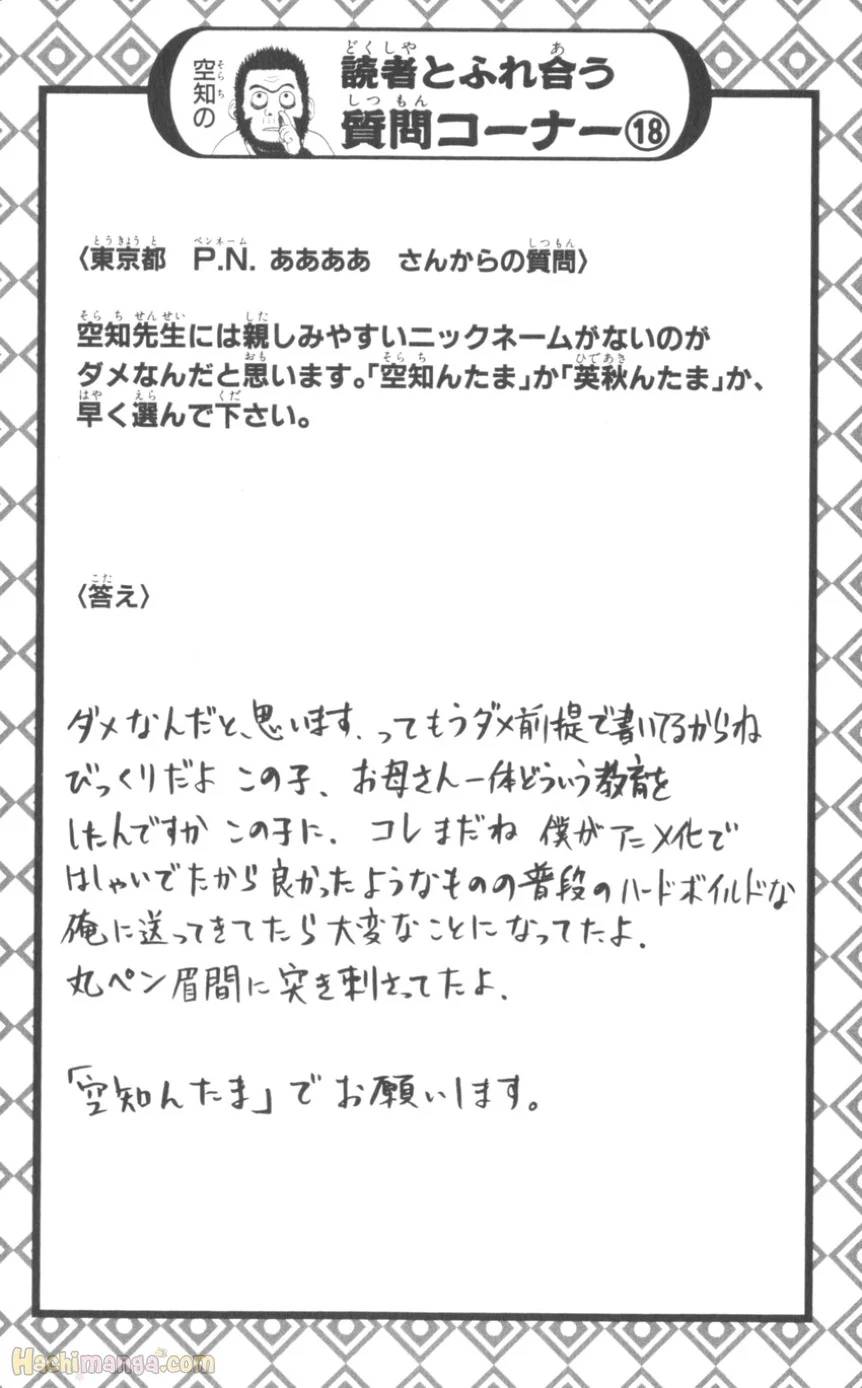 空知の
読者とふれ合う
質問コーナー⑱
〈東京都　P.N. ああああ　さんからの質問〉
空知先生には親しみやすいニックネームがないのが
ダメなんだと思います。「空知んたま」か「英秋んたま」か、
早く選んで下さい。
〈答え〉
ダメなんだと、思います、ってもうダメ前提で書いてるからね
びっくりだよ この子、お母さん一体どういう教育を
したんですか この子に、コレまだね 僕がアニメ化で
はしゃいでたから良かったようなものの普段のハードボイルドな
俺に送ってきてたら大変なことになってたよ.
丸ペン眉間に突き刺さってたよ.
「空知んたま」でお願いします。
Hachimanga.com